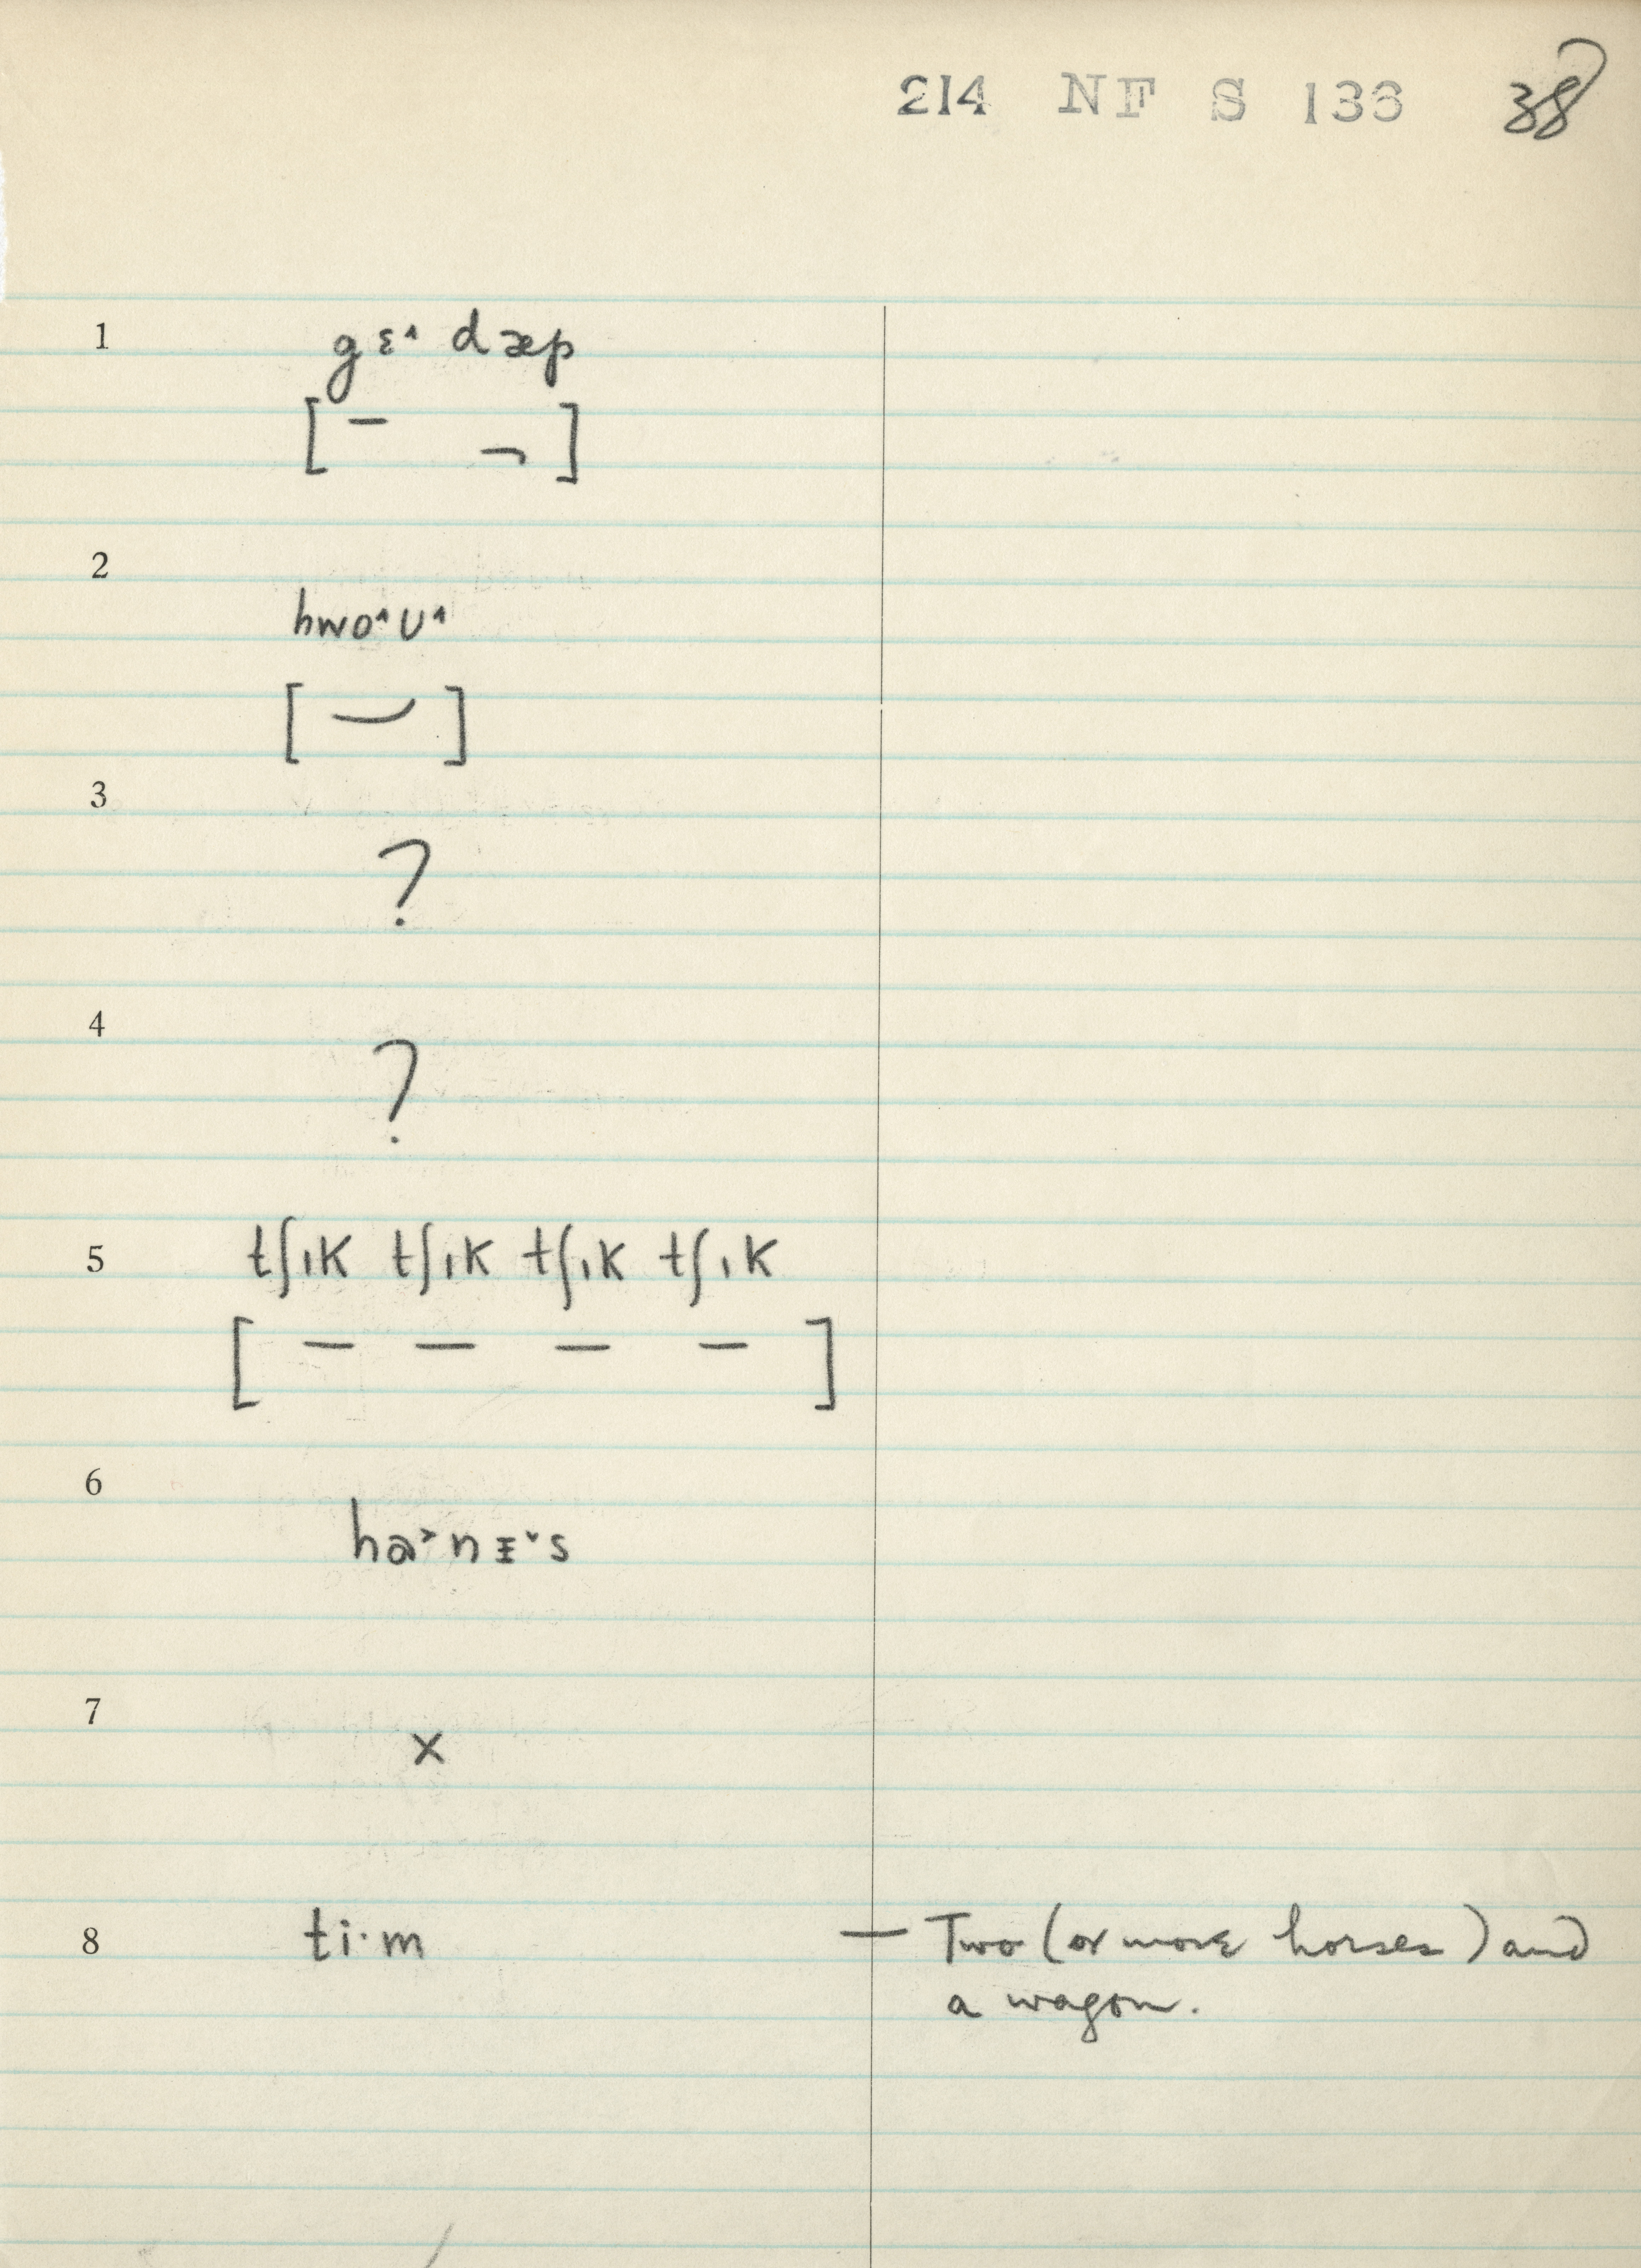 214 NF S 136 38
1 gɛ˄ dæp
[ – ¬ ]
2
hwo˄ʊ˄
[ ‿ ]
3
?
4
?
5 tʃɪk tʃɪk tʃɪk tʃɪk
[ – – – – ]
6
hɑ˃nɪ˅s
7
x
8 ti·m — Two (or more horses) and
a wagon.